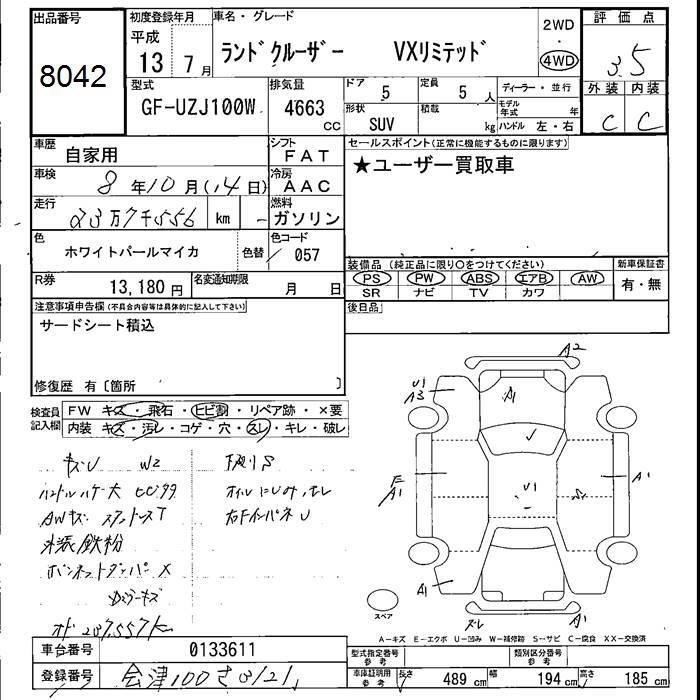 出品番号
8042
初度登録年月
平成
13 7月
車名・グレード
ランドクルーザー VXリミテッド
2WD
4WD
評価点
3.5
外装 内装
C C
型式
GF-UZJ100W
排気量
4663
CC
ドア
5
定員
5 人
ディーラー・並行
形状
SUV
積載
kg
モデル年式
年
ハンドル 左・右
車歴
自家用
シフト
FAT
車検
8年10月(14日)
冷房
AAC
走行
23万7千556 km
燃料
ガソリン
色
ホワイトパールマイカ
色替
色コード
057
R券
13,180 円
名変通知期限
月 日
セールスポイント(正常に機能するものに限ります)
★ユーザー買取車
装備品(純正品に限り〇をつけてください)
PS PW ABS エアB AW
SR ナビ TV カワ
新車保証書
有・無
後日品
注意事項申告欄(不具合内容等は具体的に記入して下さい)
サードシート積込
修復歴 有〔箇所 〕
検査員記入欄
FW キズ・飛石・ヒビ割・リペア跡・×要
内装 キズ・汚レ・コゲ・穴・スレ・キレ・破レ
キズU W2
下廻りS
ハンドルハゲ大
オイルにじみ
AWキズ
外装鉄粉
A2
U1
A3
A1
U1
A1
A1
A1
A1
スペア
A-キズ E-エクボ U-凹み W-補修跡 S-サビ C-腐食 XX-交換済
車台番号
0133611
登録番号
会津100さ3121
型式指定番号
参考
類別区分番号
参考
車庫証明用
参考
長さ
489 cm
幅
194 cm
高さ
185 cm